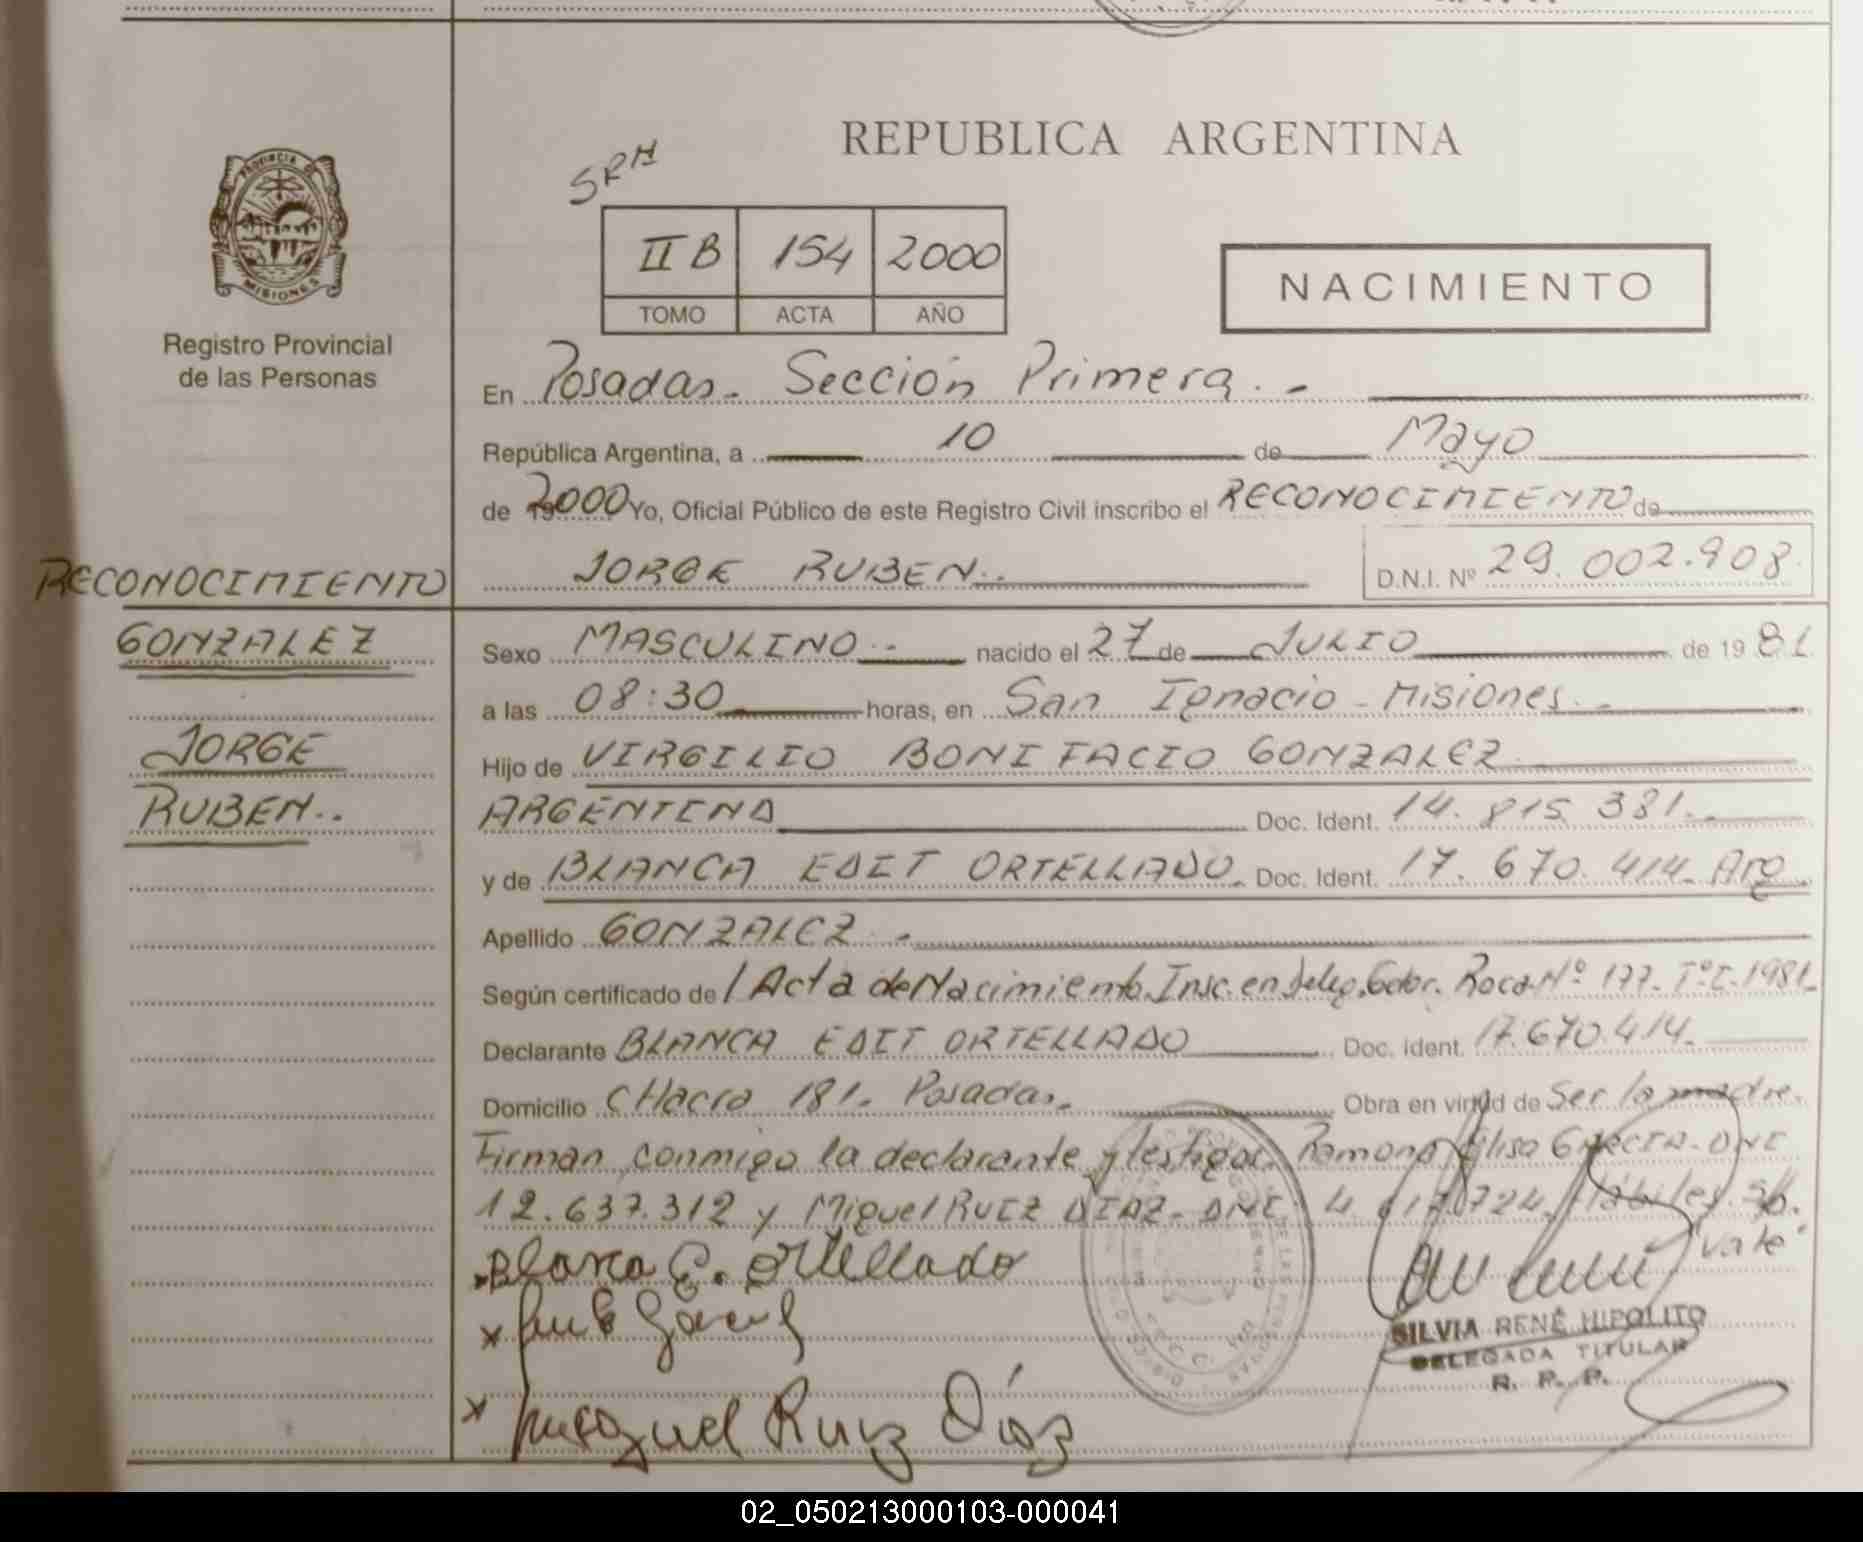 PROVINCIA DE
MISIONES
Registro Provincial
de las Personas
REPUBLICA ARGENTINA
SRH
II B 154 2000
TOMO ACTA AÑO
NACIMIENTO
En Posadas. Sección Primera.-
República Argentina, a 10 de Mayo
de 2000 Yo, Oficial Público de este Registro Civil inscribo el RECONOCIMIENTO de
JORGE RUBEN.. D.N.I. Nº 29.002.908.
RECONOCIMIENTO
GONZALEZ
JORGE
RUBEN..
Sexo MASCULINO.- nacido el 27 de JULIO de 1981
a las 08:30 horas, en San Ignacio - Misiones.-
Hijo de VIRGILIO BONIFACIO GONZALEZ
ARGENTINO Doc. Ident. 14.815.381.-
y de BLANCA EDIT ORTELLADO. Doc. Ident. 17.670.414- Arg.
Apellido GONZALEZ.-
Según certificado de 1 Acta de Nacimiento. Insc. en Deleg. Gdor. Roca Nº 177- Tº I- 1981-
Declarante BLANCA EDIT ORTELLADO Doc. Ident. 17.670.414-
Domicilio CHacra 181- Posadas.- Obra en virtud de Ser la madre.
Firman conmigo la declarante y testigos. Ramona Elisa GARCIA- DNI
12.637.312 y Miguel RUIZ DIAZ- DNI 4.617.724. Hábiles. S/b.
Vale
Blanca E. Ortellado
x
x Miguel Ruiz Díaz
SILVIA RENÉ HIPOLITO
DELEGADA TITULAR
R. P. P.
02_050213000103-000041